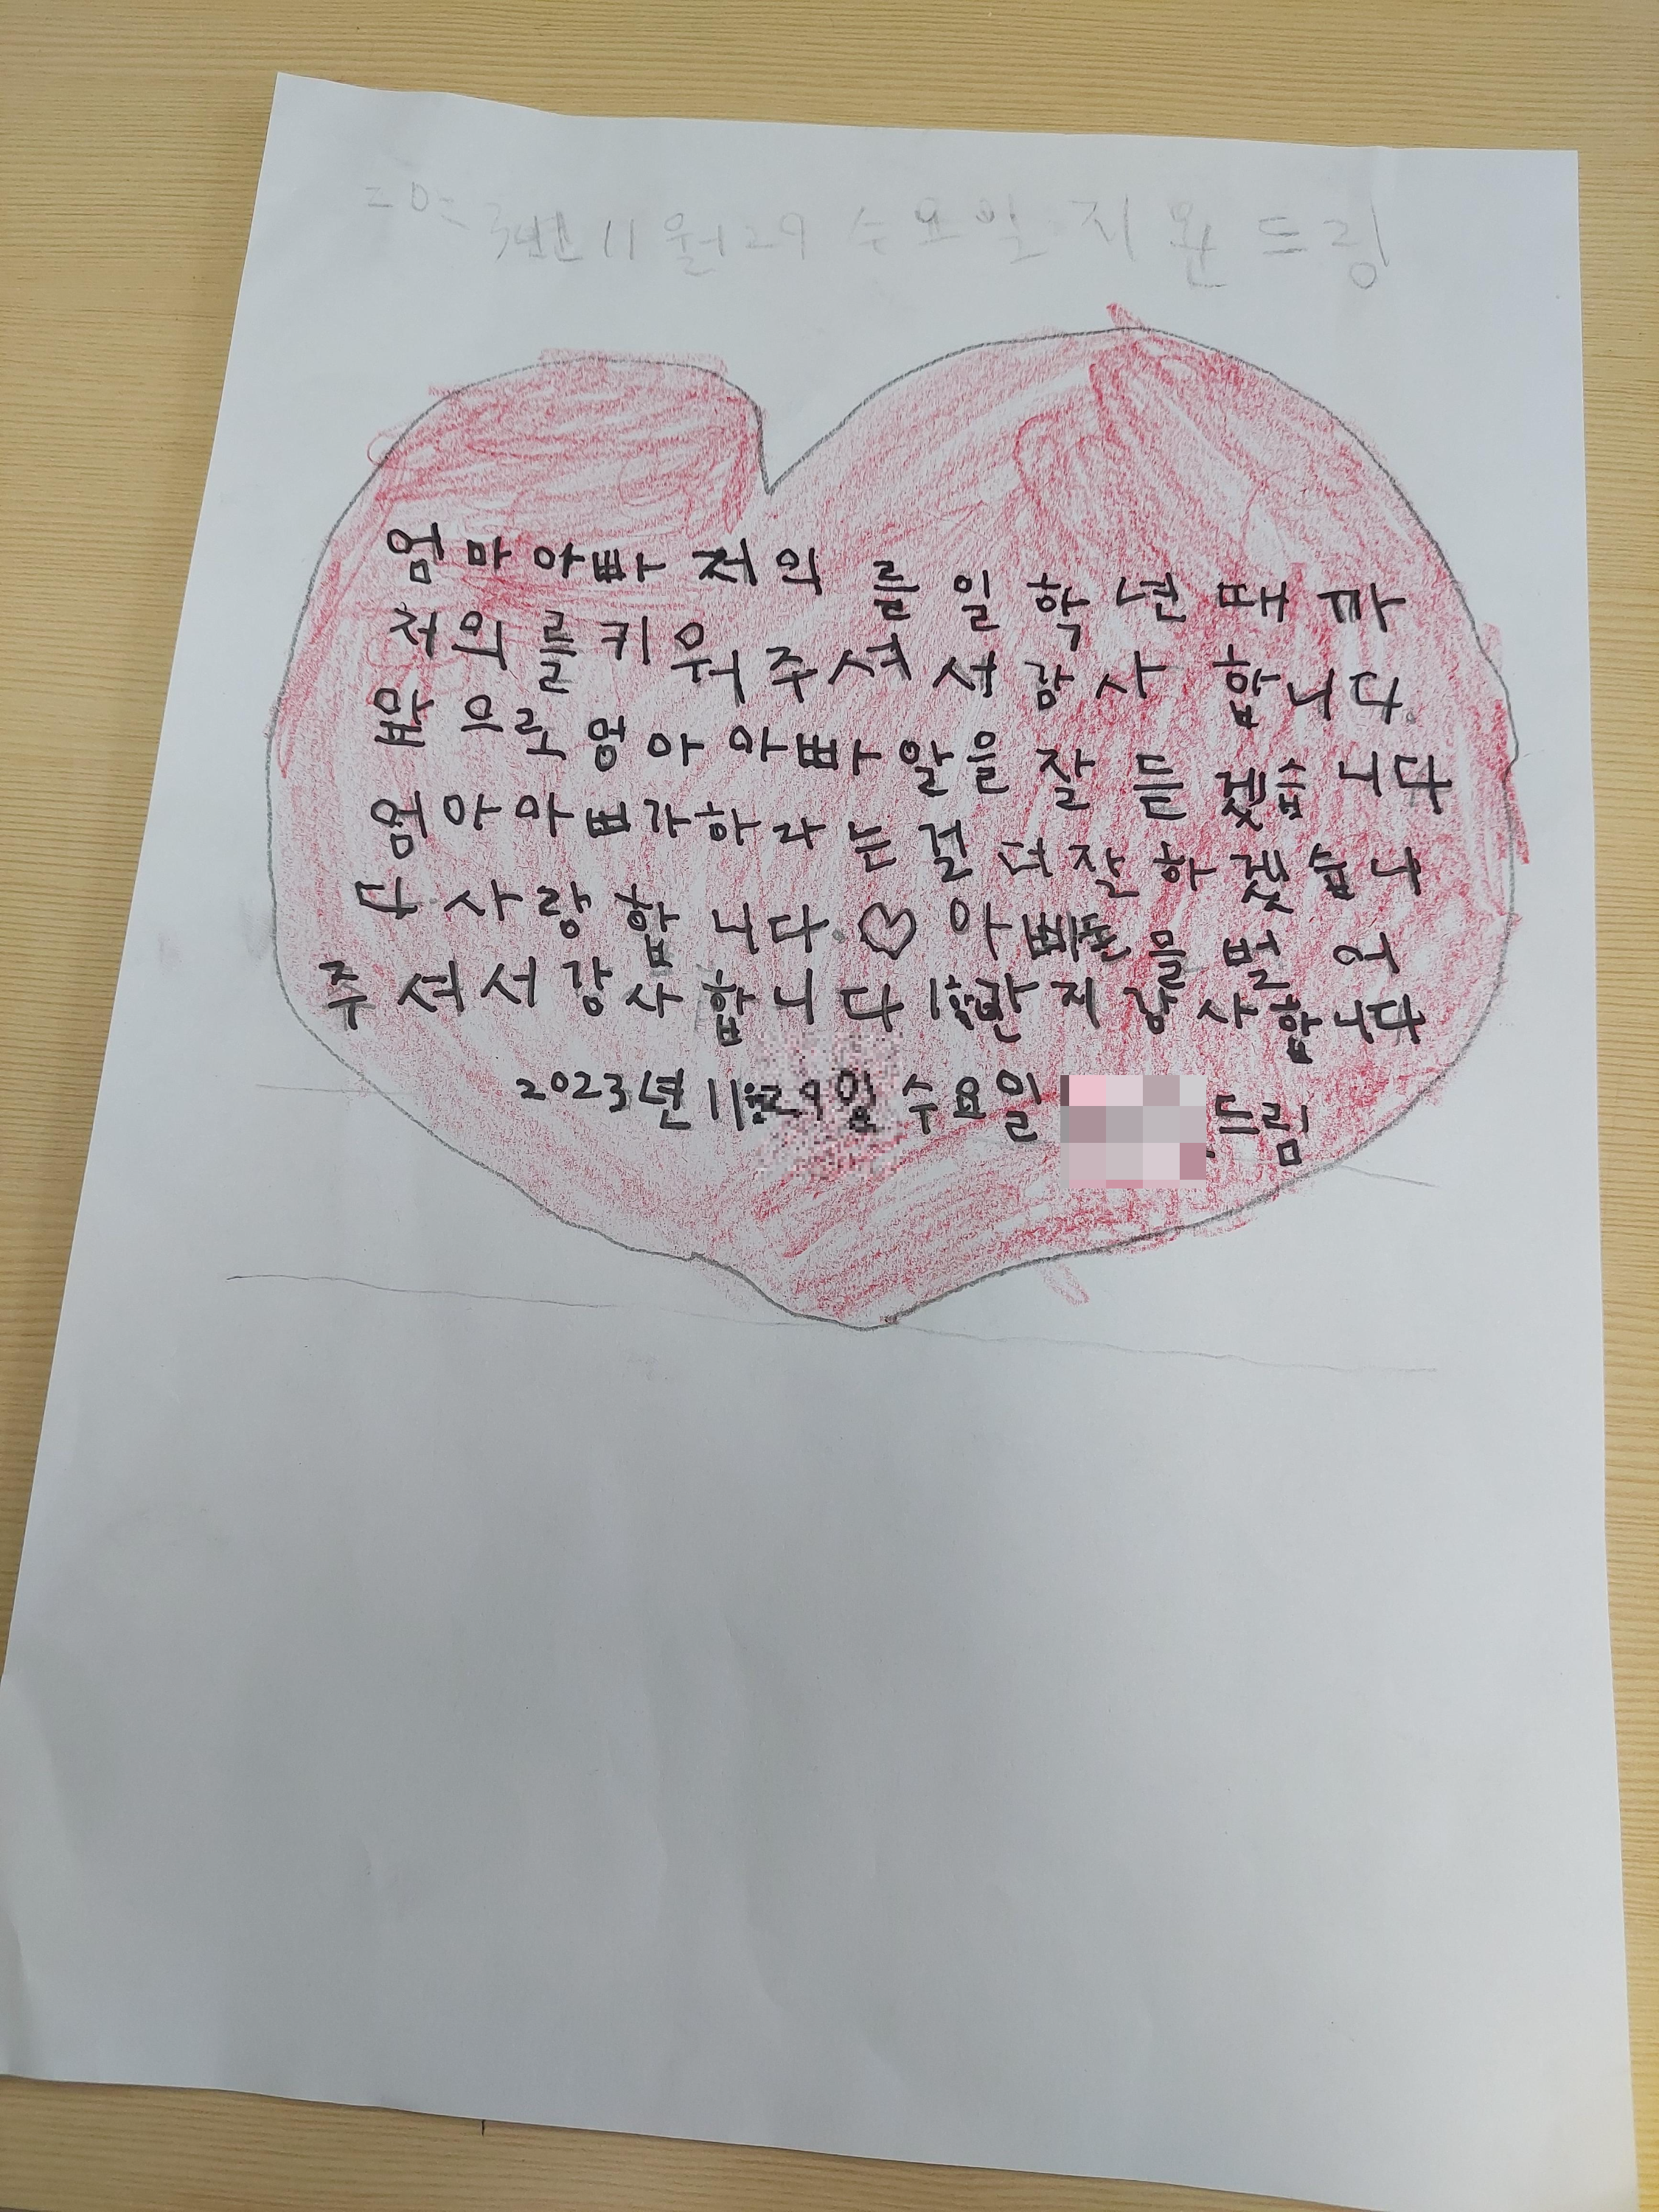 2023년 11월 29 수요일 지완 드림
엄마 아빠 저의 를 일 학년 때 까
저의 를 키워 주셔서 감사 합니다.
앞으로 엄마 아빠 말을 잘 듣겠습니다
엄마 아빠가 하라는 걸 더 잘 하겠습니
다 사랑합니다. ♡ 아빠 돈 를 벌어
주셔서 감사합니다 감사합니다
2023년 11월 29일 수요일 드림